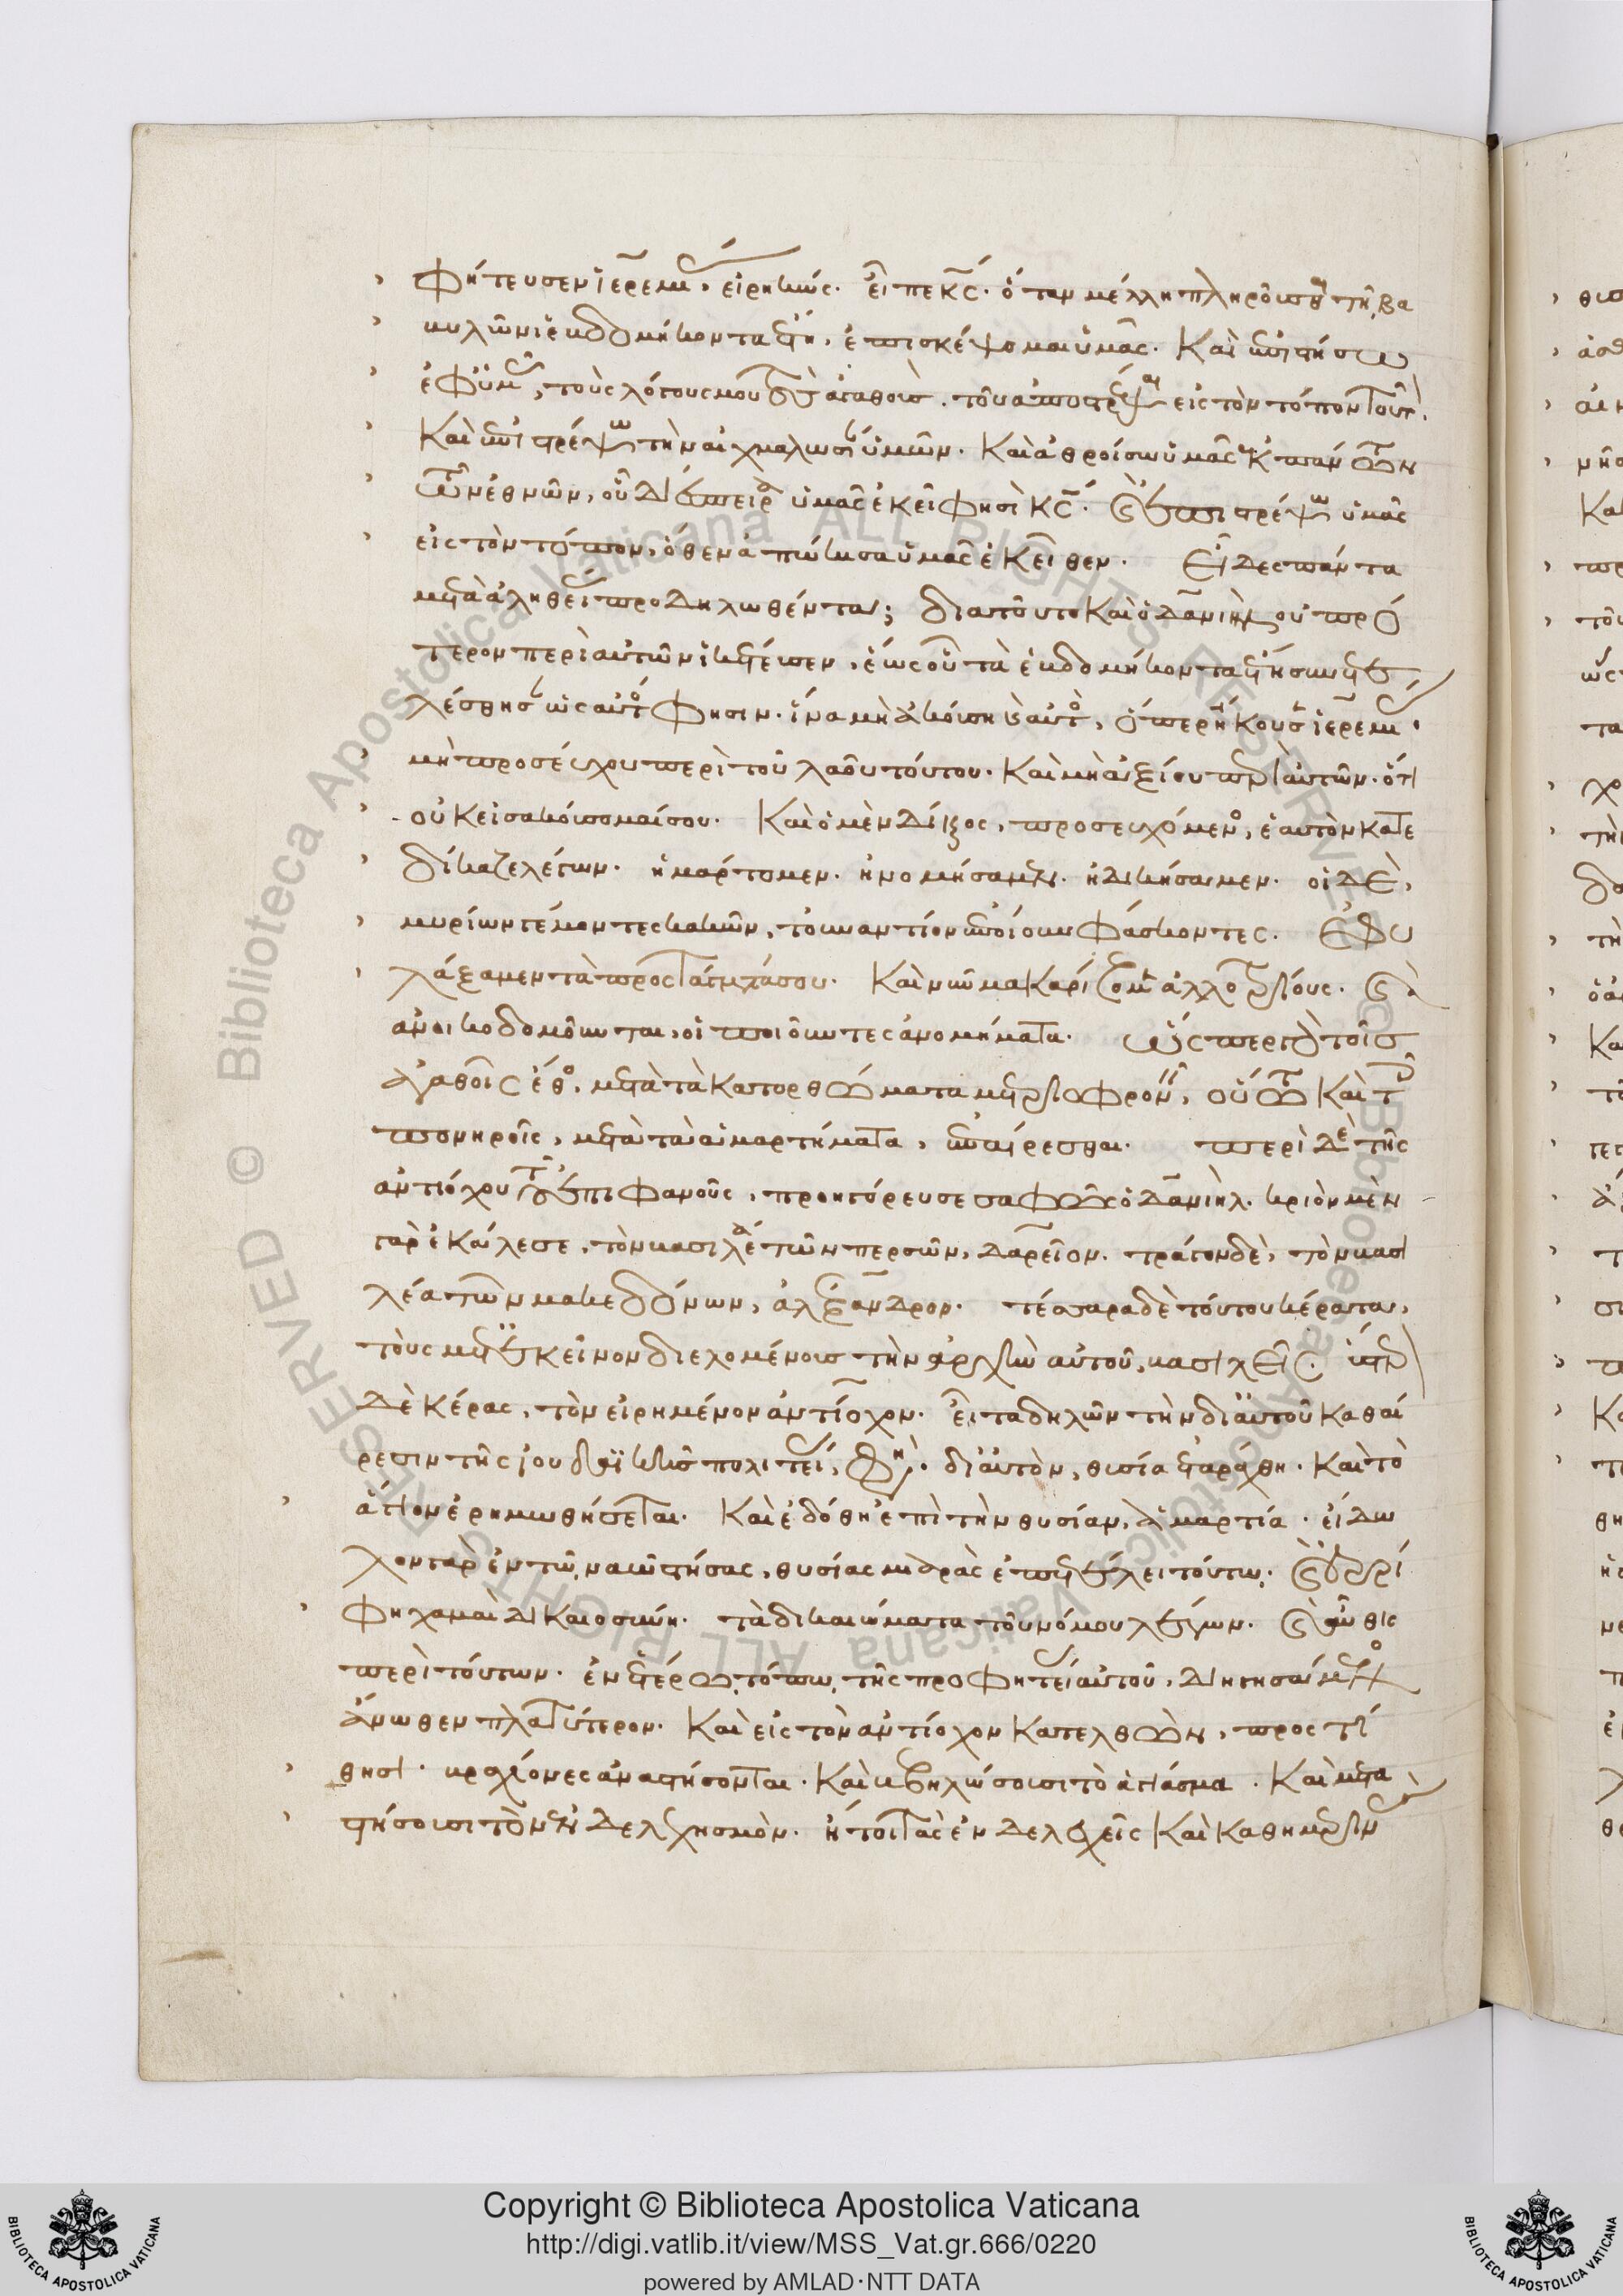 φήτευσεν ἱερεμίας, εἰρηκώς. εἶπε κς. ὅταν μέλλη πληροῦσθαι τῇ βα
βυλῶνι ἑβδομήκοντα ἔτη, ἐπισκέψομαι ὑμᾶς. Καὶ ἐπιστήσω
ἐφ ὑμᾶς, τοὺς λόγους μου τοὺς ἀγαθοὺς. τοῦ ἀποστρέψαι εἰς τὸν τόπον τοῦτον.
Καὶ ἐπιστρέψω τὴν αἰχμαλωσίαν ὑμῶν. Καὶ ἀθροίσω ὑμᾶς ἐκ πάντων
τῶν ἐθνῶν, οὗ διέσπειρα ὑμᾶς ἐκεῖ φησὶ κς. καὶ ἐπιστρέψω ὑμᾶς
εἰς τὸν τόπον, ὅθεν ἀπώκισα ὑμᾶς ἐκεῖθεν. Εἶδες πάντα
μετὰ ἀληθείας προδηλωθέντα; διατοῦτο Καὶ ὁ δανιὴλ οὐ πρό
τερον περὶ αὐτῶν ἱκέτευσεν, ἕως οὗ τὰ ἑβδομήκοντα ἔτη συνετε
λέσθησαν ὡς αὐτός φησιν. ἵνα μὴ ἀκούση καὶ αὐτὸς, ὅπερ ἤκουσεν ἱερεμίας.
μὴ προσεύχου περὶ τοῦ λαοῦ τούτου. Καὶ μὴ ἀξίου περὶ αὐτῶν. ὅτι
οὐκ εἰσακούσομαί σου. Καὶ ὁ μὲν δίκαιος, προσευχόμενος, ἑαυτὸν κατε
δίκαζε λέγων. ἡμάρτομεν. ἠνομήσαμεν. ἠδικήσαμεν. οἱ δὲ,
μυρίων γέμοντες κακῶν, τοὐναντίον ἐποίουν φάσκοντες. Ἐφυ
λάξαμεν τὰ προστάγματά σου. Καὶ νῦν μακαρίζομεν ἀλλοτρίους. καὶ
ἀνοικοδομοῦνται, οἱ ποιοῦντες ἀνομήματα. Ὥσπερ γὰρ τοῖς
ἀγαθοῖς ἔθος, μετὰ τὰ κατορθώματα μετριοφρονεῖν, οὕτω Καὶ τοῖς
πονηροῖς, μετὰ τὰ ἁμαρτήματα, ἐπαίρεσθαι. περὶ δὲ τῆς
ἀντιόχου τοῦ ἐπιφανοῦς, προηγόρευσε σαφῶς ὁ δανιὴλ. κριὸν μὲν
γὰρ ἐκάλεσε, τὸν βασιλέα τῶν περσῶν, δαρεῖον. τράγον δὲ, τὸν βασι
λέα τῶν μακεδόνων, ἀλέξανδρον. τέσσαρα δὲ τούτου κέρατα,
τοὺς μετ ἐκεῖνον διεχομένους τὴν ἀρχὴν αὐτοῦ, βασιλεῖς. ἕτερον
δὲ κέρας, τὸν εἰρημένον ἀντίοχον. εἶτα δηλῶν τὴν δι αὐτοῦ καθαί
ρεσιν τῆς ἰουδαϊκῆς πολιτείας, φησί. δι αὐτὸν, θυσία ἐταράχθη. Καὶ τὸ
ἅγιον ἐρημωθήσεται. Καὶ ἐδόθη ἐπὶ τὴν θυσίαν, ἁμαρτία. εἴδω
λον γὰρ ἐν τῷ ναῷ στήσας, θυσίας μιαρὰς ἐπετέλει τούτω. καὶ ἐρρί
φη χαμαὶ δικαιοσύνη. τὰ δικαιώματα τοῦ νόμου λέγων. καὶ αὖθις
περὶ τούτων. ἐν ἑτέρω τόπω τῆς προφητείας αὐτοῦ, διηγησάμενος
ἄνωθεν πλατύτερον. Καὶ εἰς τὸν ἀντίοχον κατελθὼν, προστί
θησι. βραχίονες ἀναστήσονται. Καὶ βεβηλώσουσι τὸ ἁγίασμα. Καὶ μετα
στήσουσι τὸν ἐνδελχησμὸν. ἤτοι τὰς ἐνδελεχεῖς Καὶ καθημερινὰς